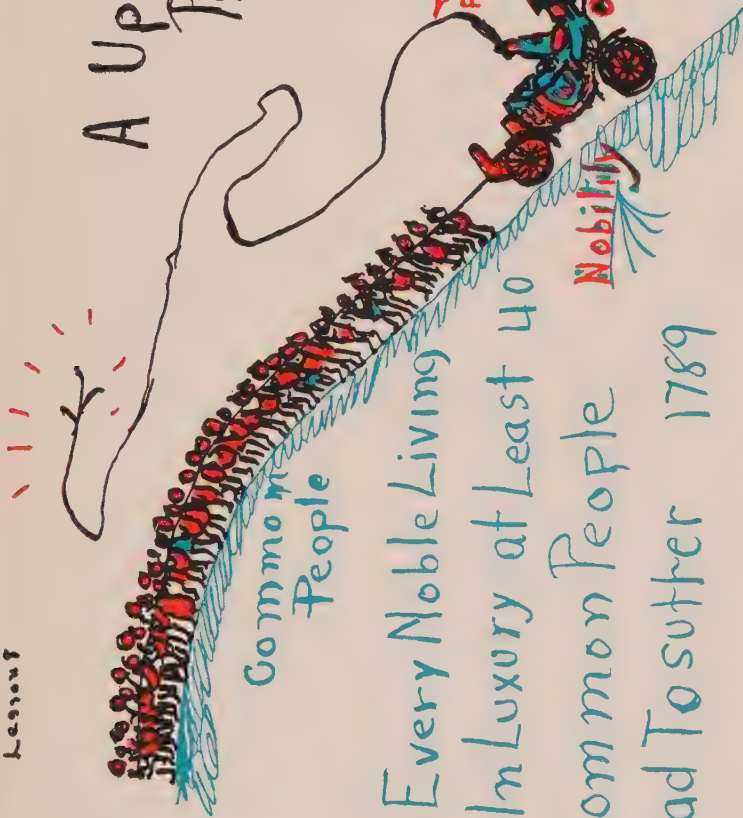 Lesson 8
A UP
Common
People
Every Noble Living
In Luxury at Least 40
ommon People
Nobility
ad To suffer 1789